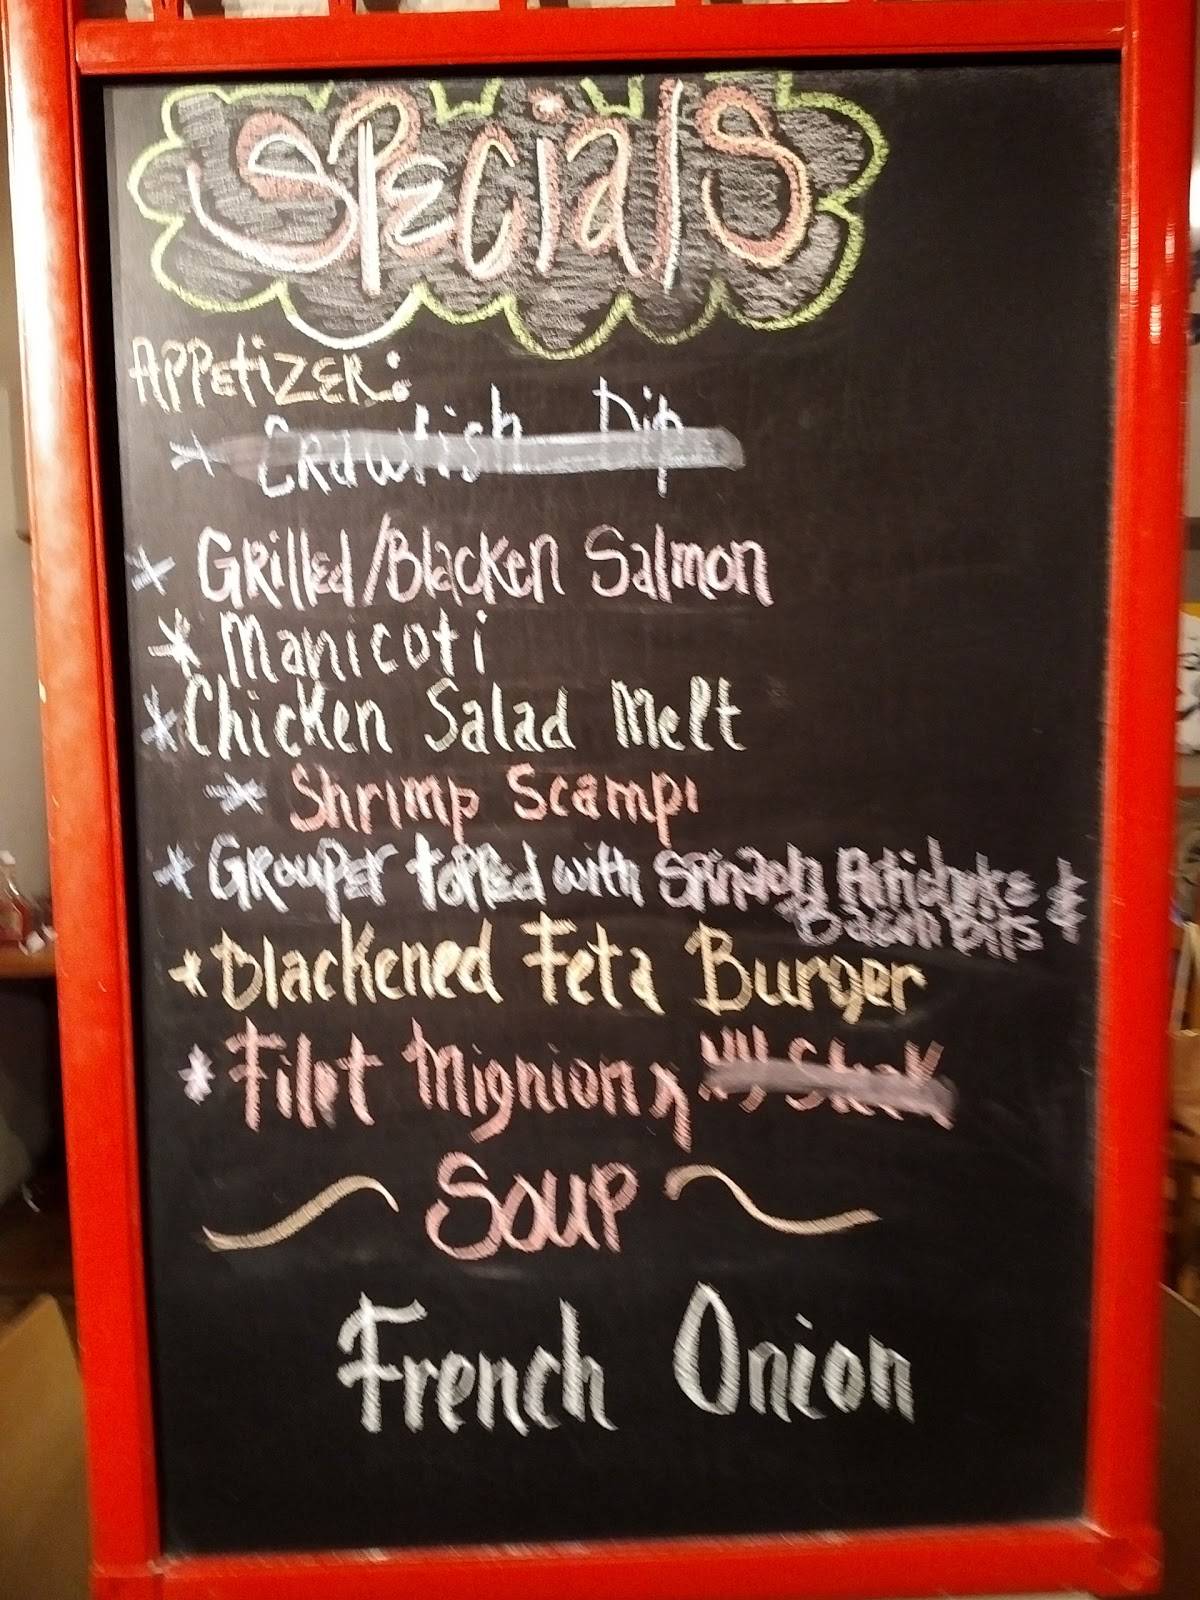 Specials
Appetizer:
* Crawfish Dip
* Grilled/Blacken Salmon
* Manicoti
* Chicken Salad Melt
* Shrimp Scampi
* Grouper topped with Spinach Artichoke &
Bacon Bits
* Blackened Feta Burger
* Filet Mignion, NY Steak
~ Soup ~
French Onion